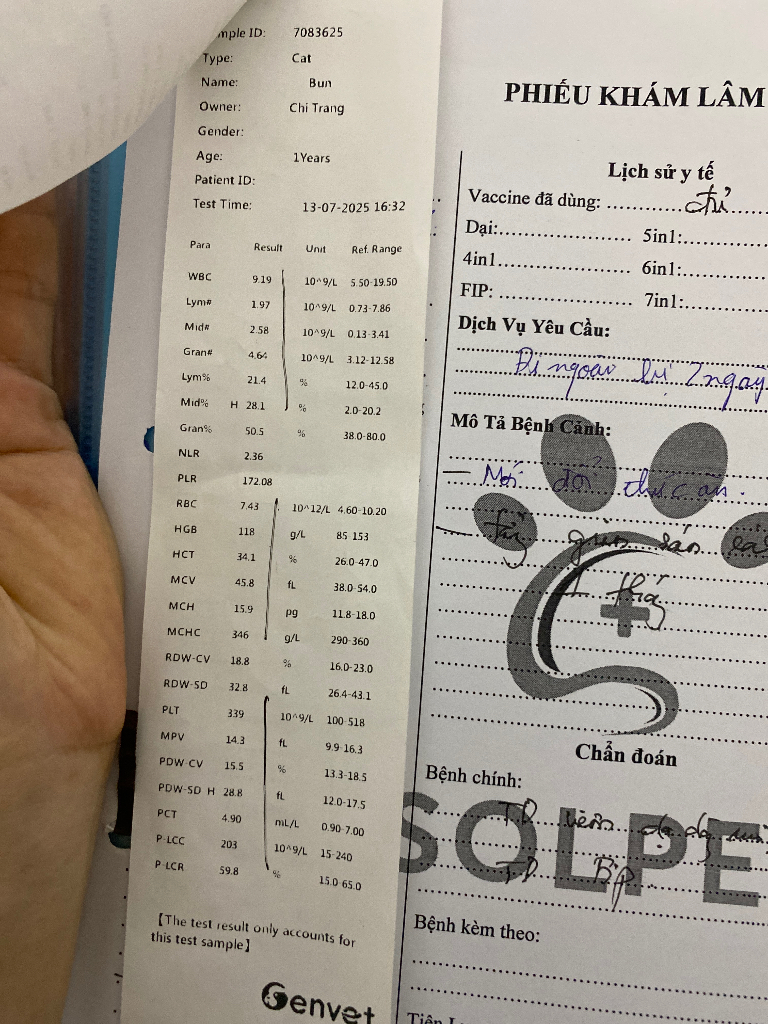 mple ID: 7083625
Type: Cat
Name: Bun
Owner: Chi Trang
Gender:
Age: 1Years
Patient ID:
Test Time: 13-07-2025 16:32
Para Result Unit Ref. Range
WBC 9.19 10^9/L 5.50-19.50
Lym# 1.97 10^9/L 0.73-7.86
Mid# 2.58 10^9/L 0.13-3.41
Gran# 4.64 10^9/L 3.12-12.58
Lym% 21.4 % 12.0-45.0
Mid% H 28.1 % 2.0-20.2
Gran% 50.5 % 38.0-80.0
NLR 2.36
PLR 172.08
RBC 7.43 10^12/L 4.60-10.20
HGB 118 g/L 85-153
HCT 34.1 % 26.0-47.0
MCV 45.8 fL 38.0-54.0
MCH 15.9 pg 11.8-18.0
MCHC 346 g/L 290-360
RDW-CV 18.8 % 16.0-23.0
RDW-SD 32.8 fL 26.4-43.1
PLT 339 10^9/L 100-518
MPV 14.3 fL 9.9-16.3
PDW-CV 15.5 % 13.3-18.5
PDW-SD H 28.8 fL 12.0-17.5
PCT 4.90 mL/L 0.90-7.00
P-LCC 203 10^9/L 15-240
P-LCR 59.8 % 15.0-65.0
【The test result only accounts for
this test sample】
Genvet
PHIẾU KHÁM LÂM
Lịch sử y tế
Vaccine đã dùng: đủ
Dại: 5in1:
4in1 6in1:
FIP: 7in1:
Dịch Vụ Yêu Cầu:
Đi ngoài 2 ngày
Mô Tả Bệnh Cảnh:
- Mới đổi thức ăn.
- Tẩy giun sán
Chẩn đoán
Bệnh chính:
TD viêm dạ dày
TD BP
SOLPE
Bệnh kèm theo: